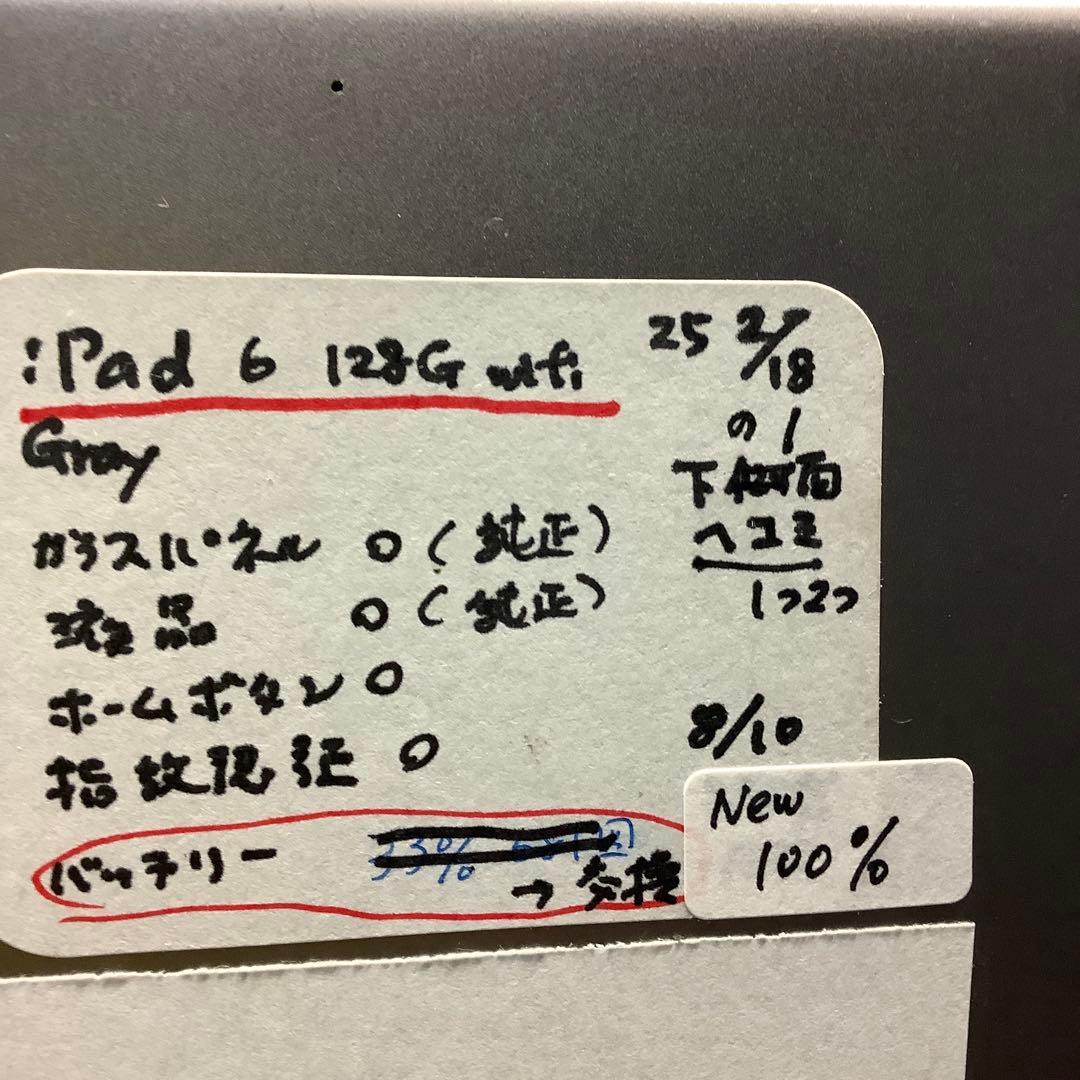 iPad 6 128G wifi
Gray
ガラスパネル ○ (純正)
液晶 ○ (純正)
ホームボタン ○
指紋認証 ○
バッテリー 33%
→ 交換
25 2/18
の1
下側面
ヘコミ
1つ2つ
8/10
New
100%